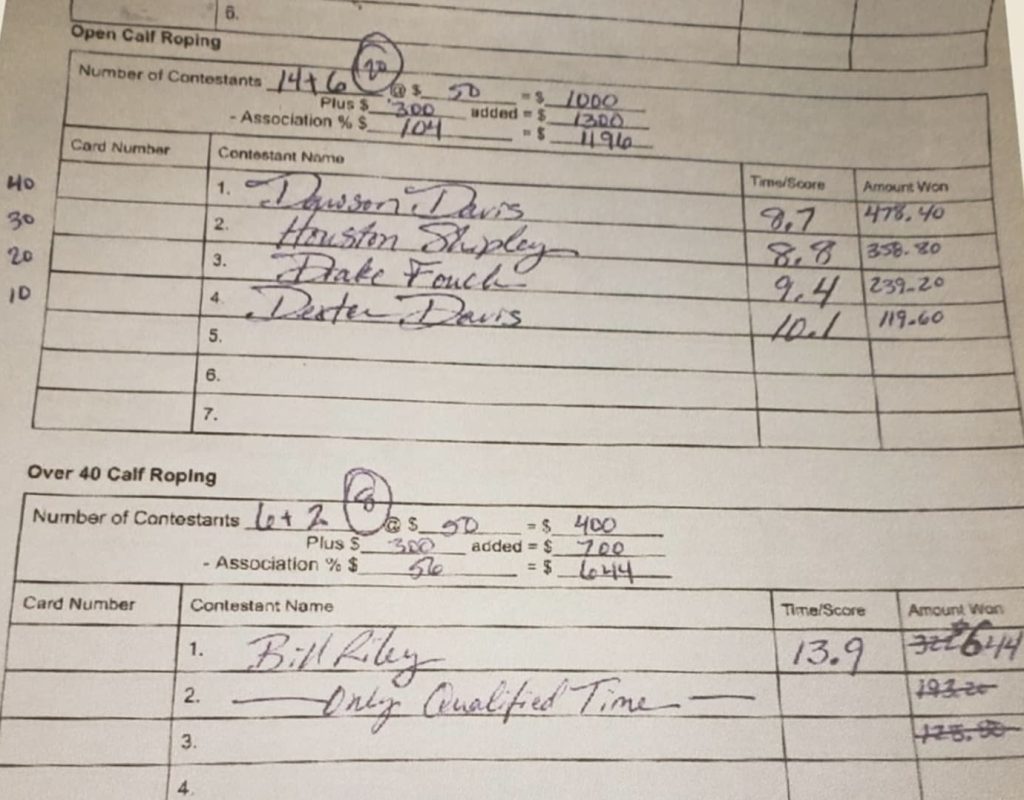 6.
Open Calf Roping
Number of Contestants 14+6 20 @ $ 50 = $ 1000
Plus $ 300 added = $ 1300
- Association % $ 104 = $ 1196
Card Number Contestant Name Time/Score Amount Won
40 1. Dawson Davis 8.7 478.40
30 2. Houston Shipley 8.8 358.80
20 3. Drake Fouch 9.4 239.20
10 4. Dexter Davis 10.1 119.60
5.
6.
7.
Over 40 Calf Roping
Number of Contestants 6+2 8 @ $ 50 = $ 400
Plus $ 300 added = $ 700
- Association % $ 56 = $ 644
Card Number Contestant Name Time/Score Amount Won
1. Bill Riley 13.9 322 $644
2. Only Qualified Time 193.20
3. 128.80
4.